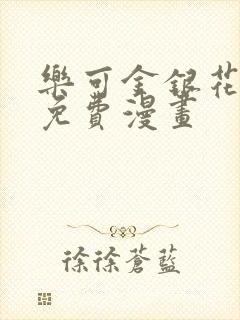 樂可金銀花
免費漫畫
徐徐蒼藍